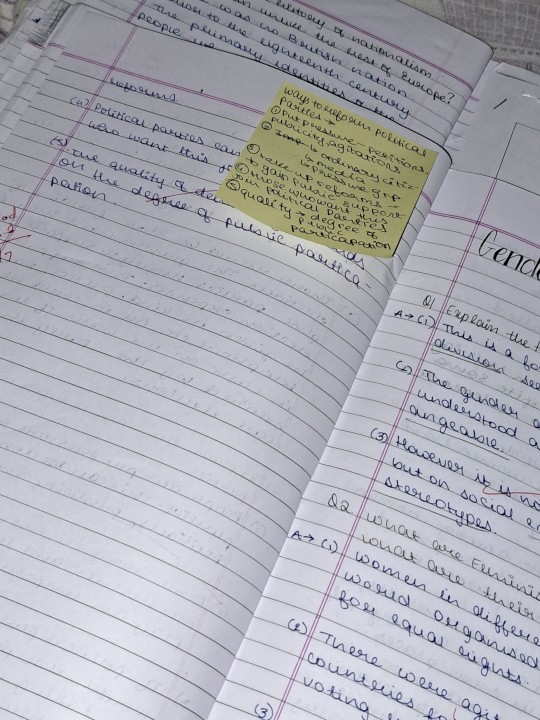 history of nationalism
unlike the rest of Europe?
was no British nation
prior to the eighteenth century
The primary identities of the
people
reforms.
(4) Political parties can
who want this
(5) The quality of
on the degree of public participa-
pation.
ways to reform political
parties
① put pressure - petitions,
publicity, agitations
② ordinary citi
media
pressure grp
③ take up reforms -
④ gain public support
those who want this
join political parties
⑤ quality → degree of
public
participation
Gende
Q1 Explain the
A→(1) This is a fo
division see
(2) The gender
understood a
angeable.
(3) However it is no
but on social e
stereotypes.
Q2. What are Feminis
What are their
A→(1) Women in differe
world organised
for equal rights.
(2) There were agit
countries fo
voting
(3)